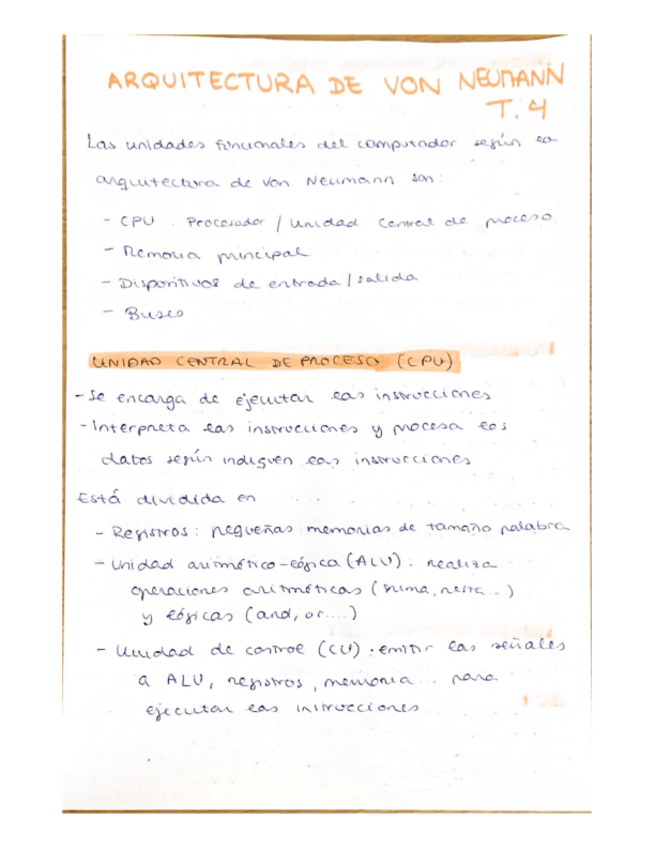 ARQUITECTURA DE VON NEUMANN
T.4
Las unidades funcionales del computador según la
arquitectura de Von Neumann son:
- CPU. Procesador / Unidad central de proceso
- Memoria principal
- Dispositivos de entrada / salida
- Buses
UNIDAD CENTRAL DE PROCESO (CPU)
- Se encarga de ejecutar las instrucciones
- Interpreta las instrucciones y procesa los
datos según indiquen las instrucciones
Está dividida en
- Registros: pequeñas memorias de tamaño palabra
- Unidad aritmético-lógica (ALU): realiza
operaciones aritméticas (suma, resta...)
y lógicas (and, or....)
- Unidad de control (CU): emitir las señales
a ALU, registros, memoria... para
ejecutar las instrucciones